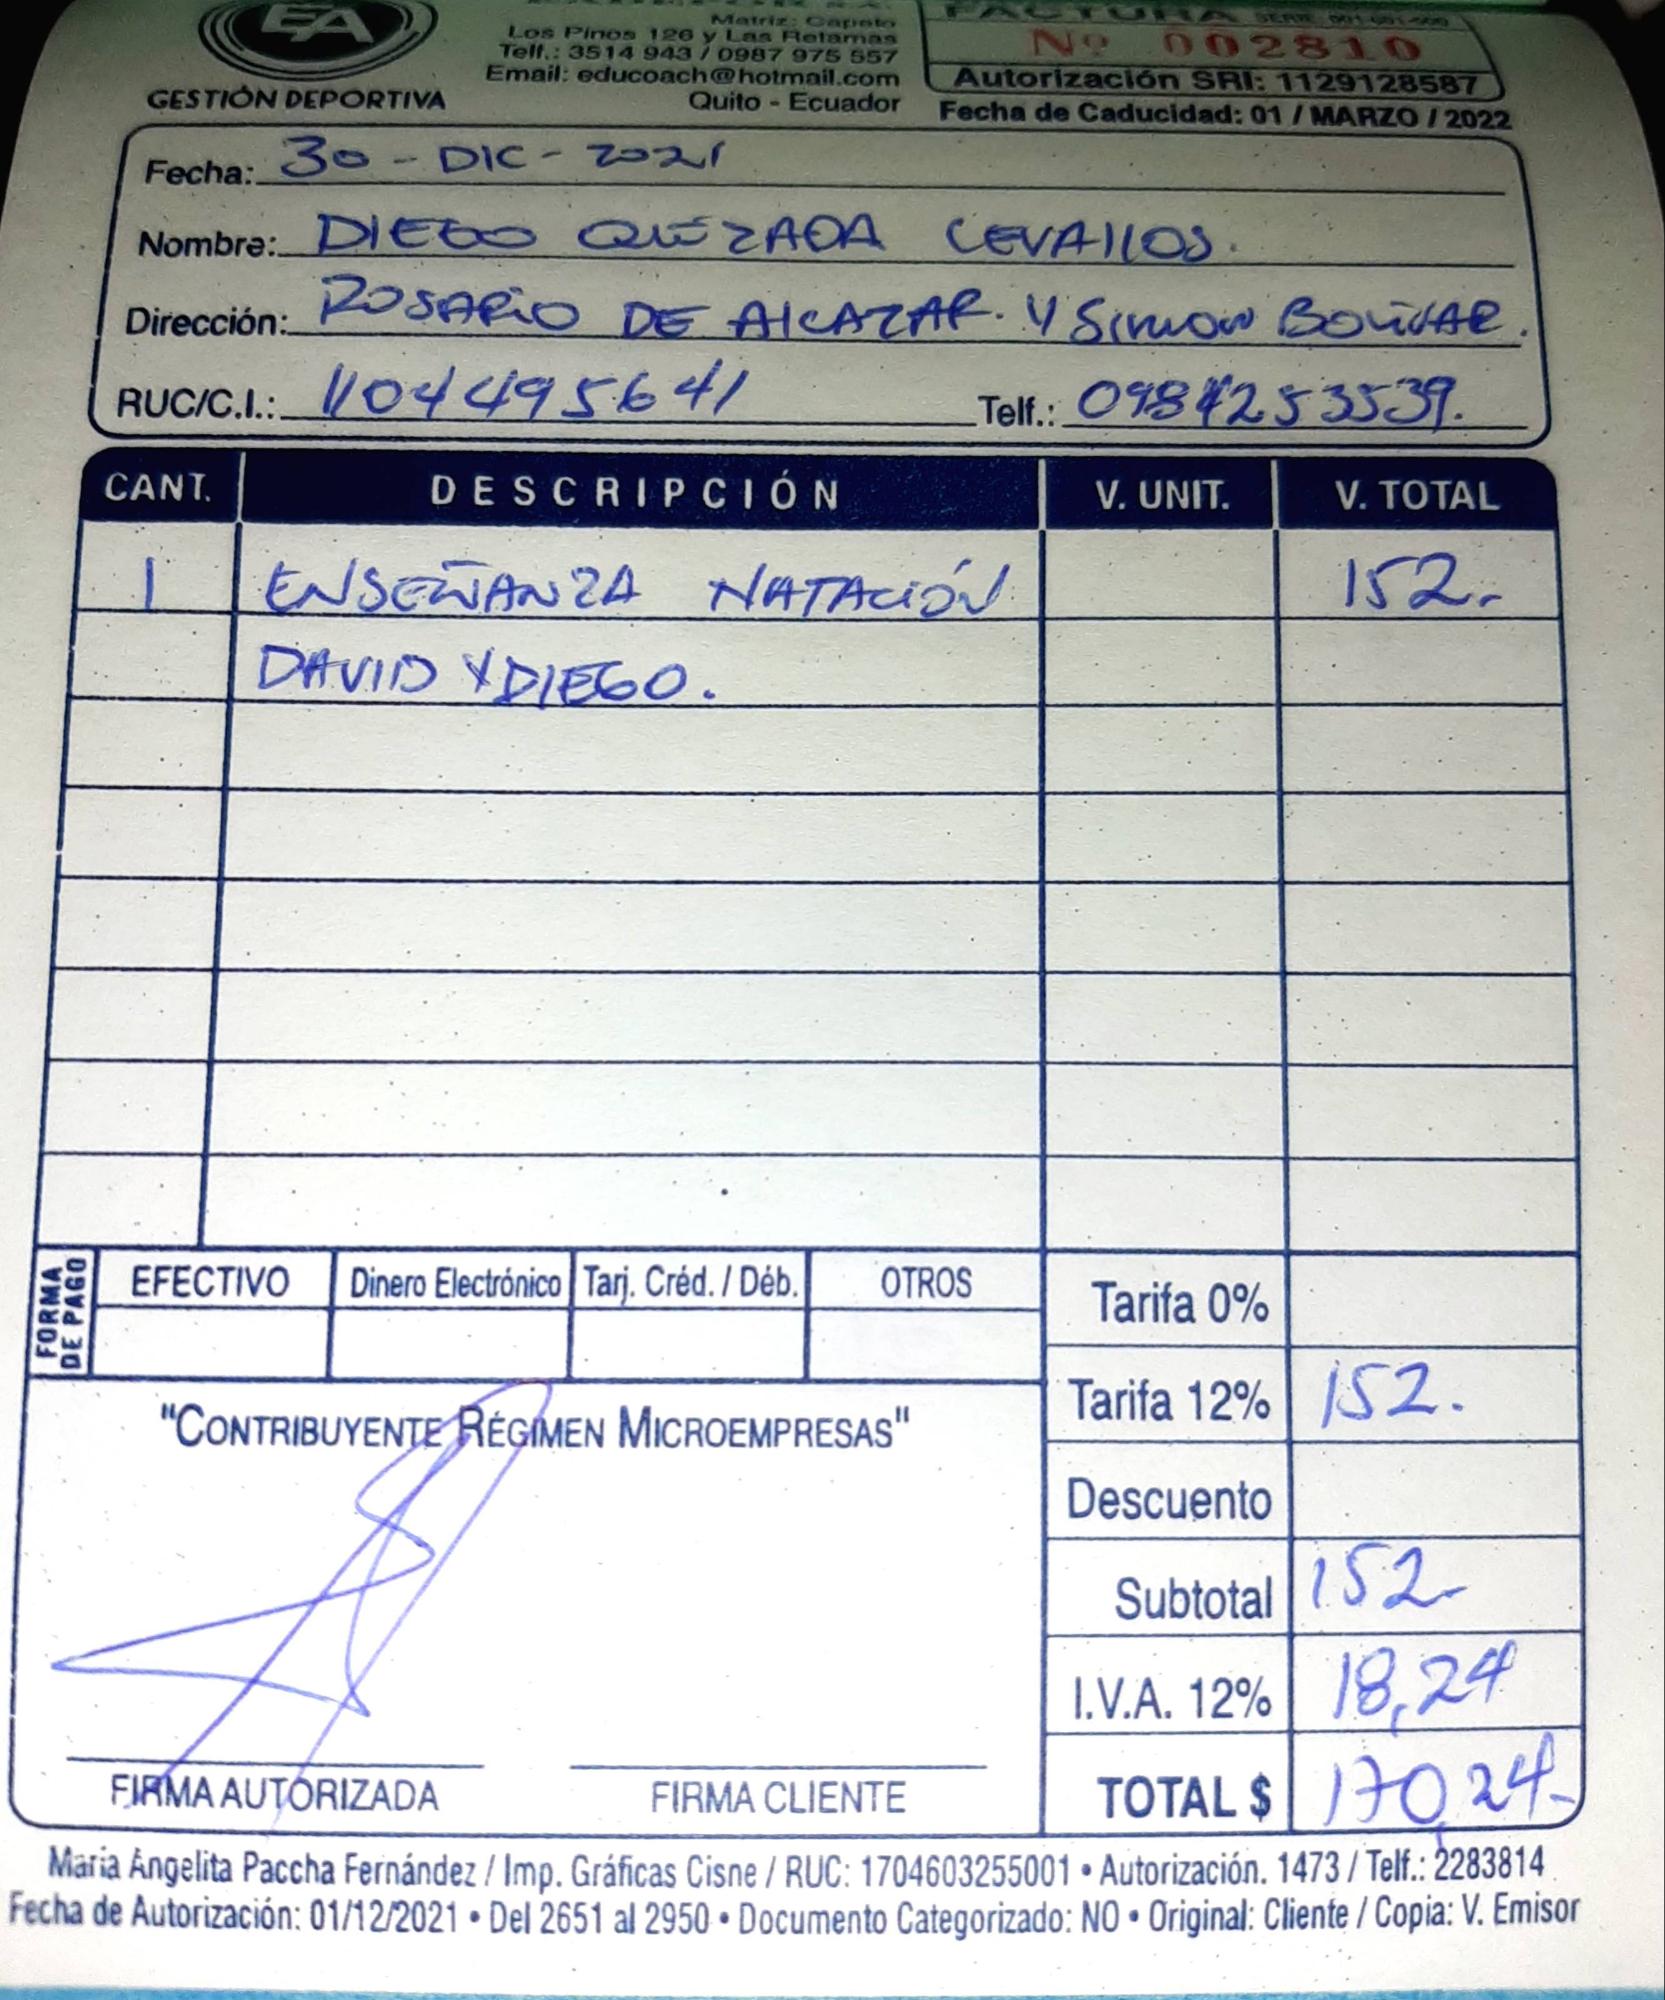 EA
GESTIÓN DEPORTIVA
Matriz: Capelo
Los Pinos 126 y Las Retamas
Telf.: 3514 943 / 0987 975 557
Email: educoach@hotmail.com
Quito - Ecuador
FACTURA SERIE 001-001-000
Nº 002810
Autorización SRI: 1129128587
Fecha de Caducidad: 01 / MARZO / 2022
Fecha: 30 - DIC - 2021
Nombre: DIEGO QUEZADA CEVALLOS.
Dirección: ROSARIO DE ALCAZAR. Y SIMON BOLIVAR.
RUC/C.I.: 1104495641 Telf.: 0984253539.
CANT. DESCRIPCIÓN V. UNIT. V. TOTAL
1 ENSEÑANZA NATACIÓN 152.-
DAVID Y DIEGO.
FORMA DE PAGO
EFECTIVO Dinero Electrónico Tarj. Créd. / Déb. OTROS
Tarifa 0%
Tarifa 12% 152.
"CONTRIBUYENTE RÉGIMEN MICROEMPRESAS"
Descuento
Subtotal 152-
I.V.A. 12% 18,24
TOTAL $ 170,24-
FIRMA AUTORIZADA FIRMA CLIENTE
Maria Angelita Paccha Fernández / Imp. Gráficas Cisne / RUC: 1704603255001 • Autorización. 1473 / Telf.: 2283814
Fecha de Autorización: 01/12/2021 • Del 2651 al 2950 • Documento Categorizado: NO • Original: Cliente / Copia: V. Emisor